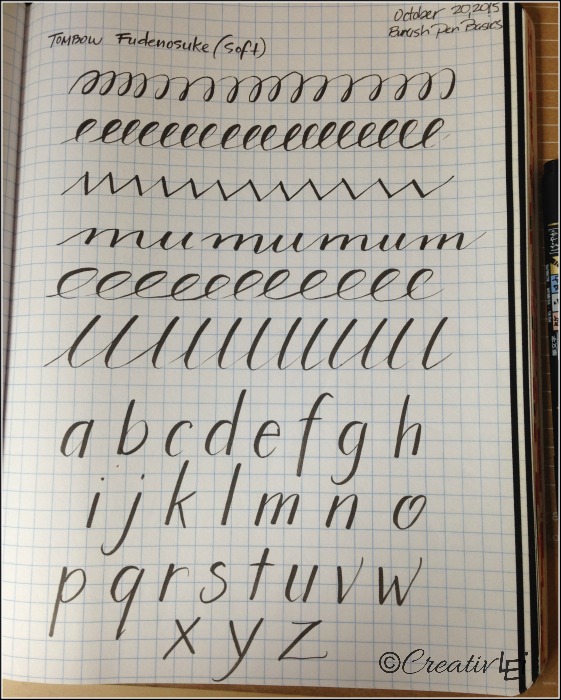 October 20, 2015
Brush Pen Basics
TOMBOW Fudenosuke (Soft)
mumumum
abcdefgh
ijklmno
pqrstuvw
xyz
©CreativLEI